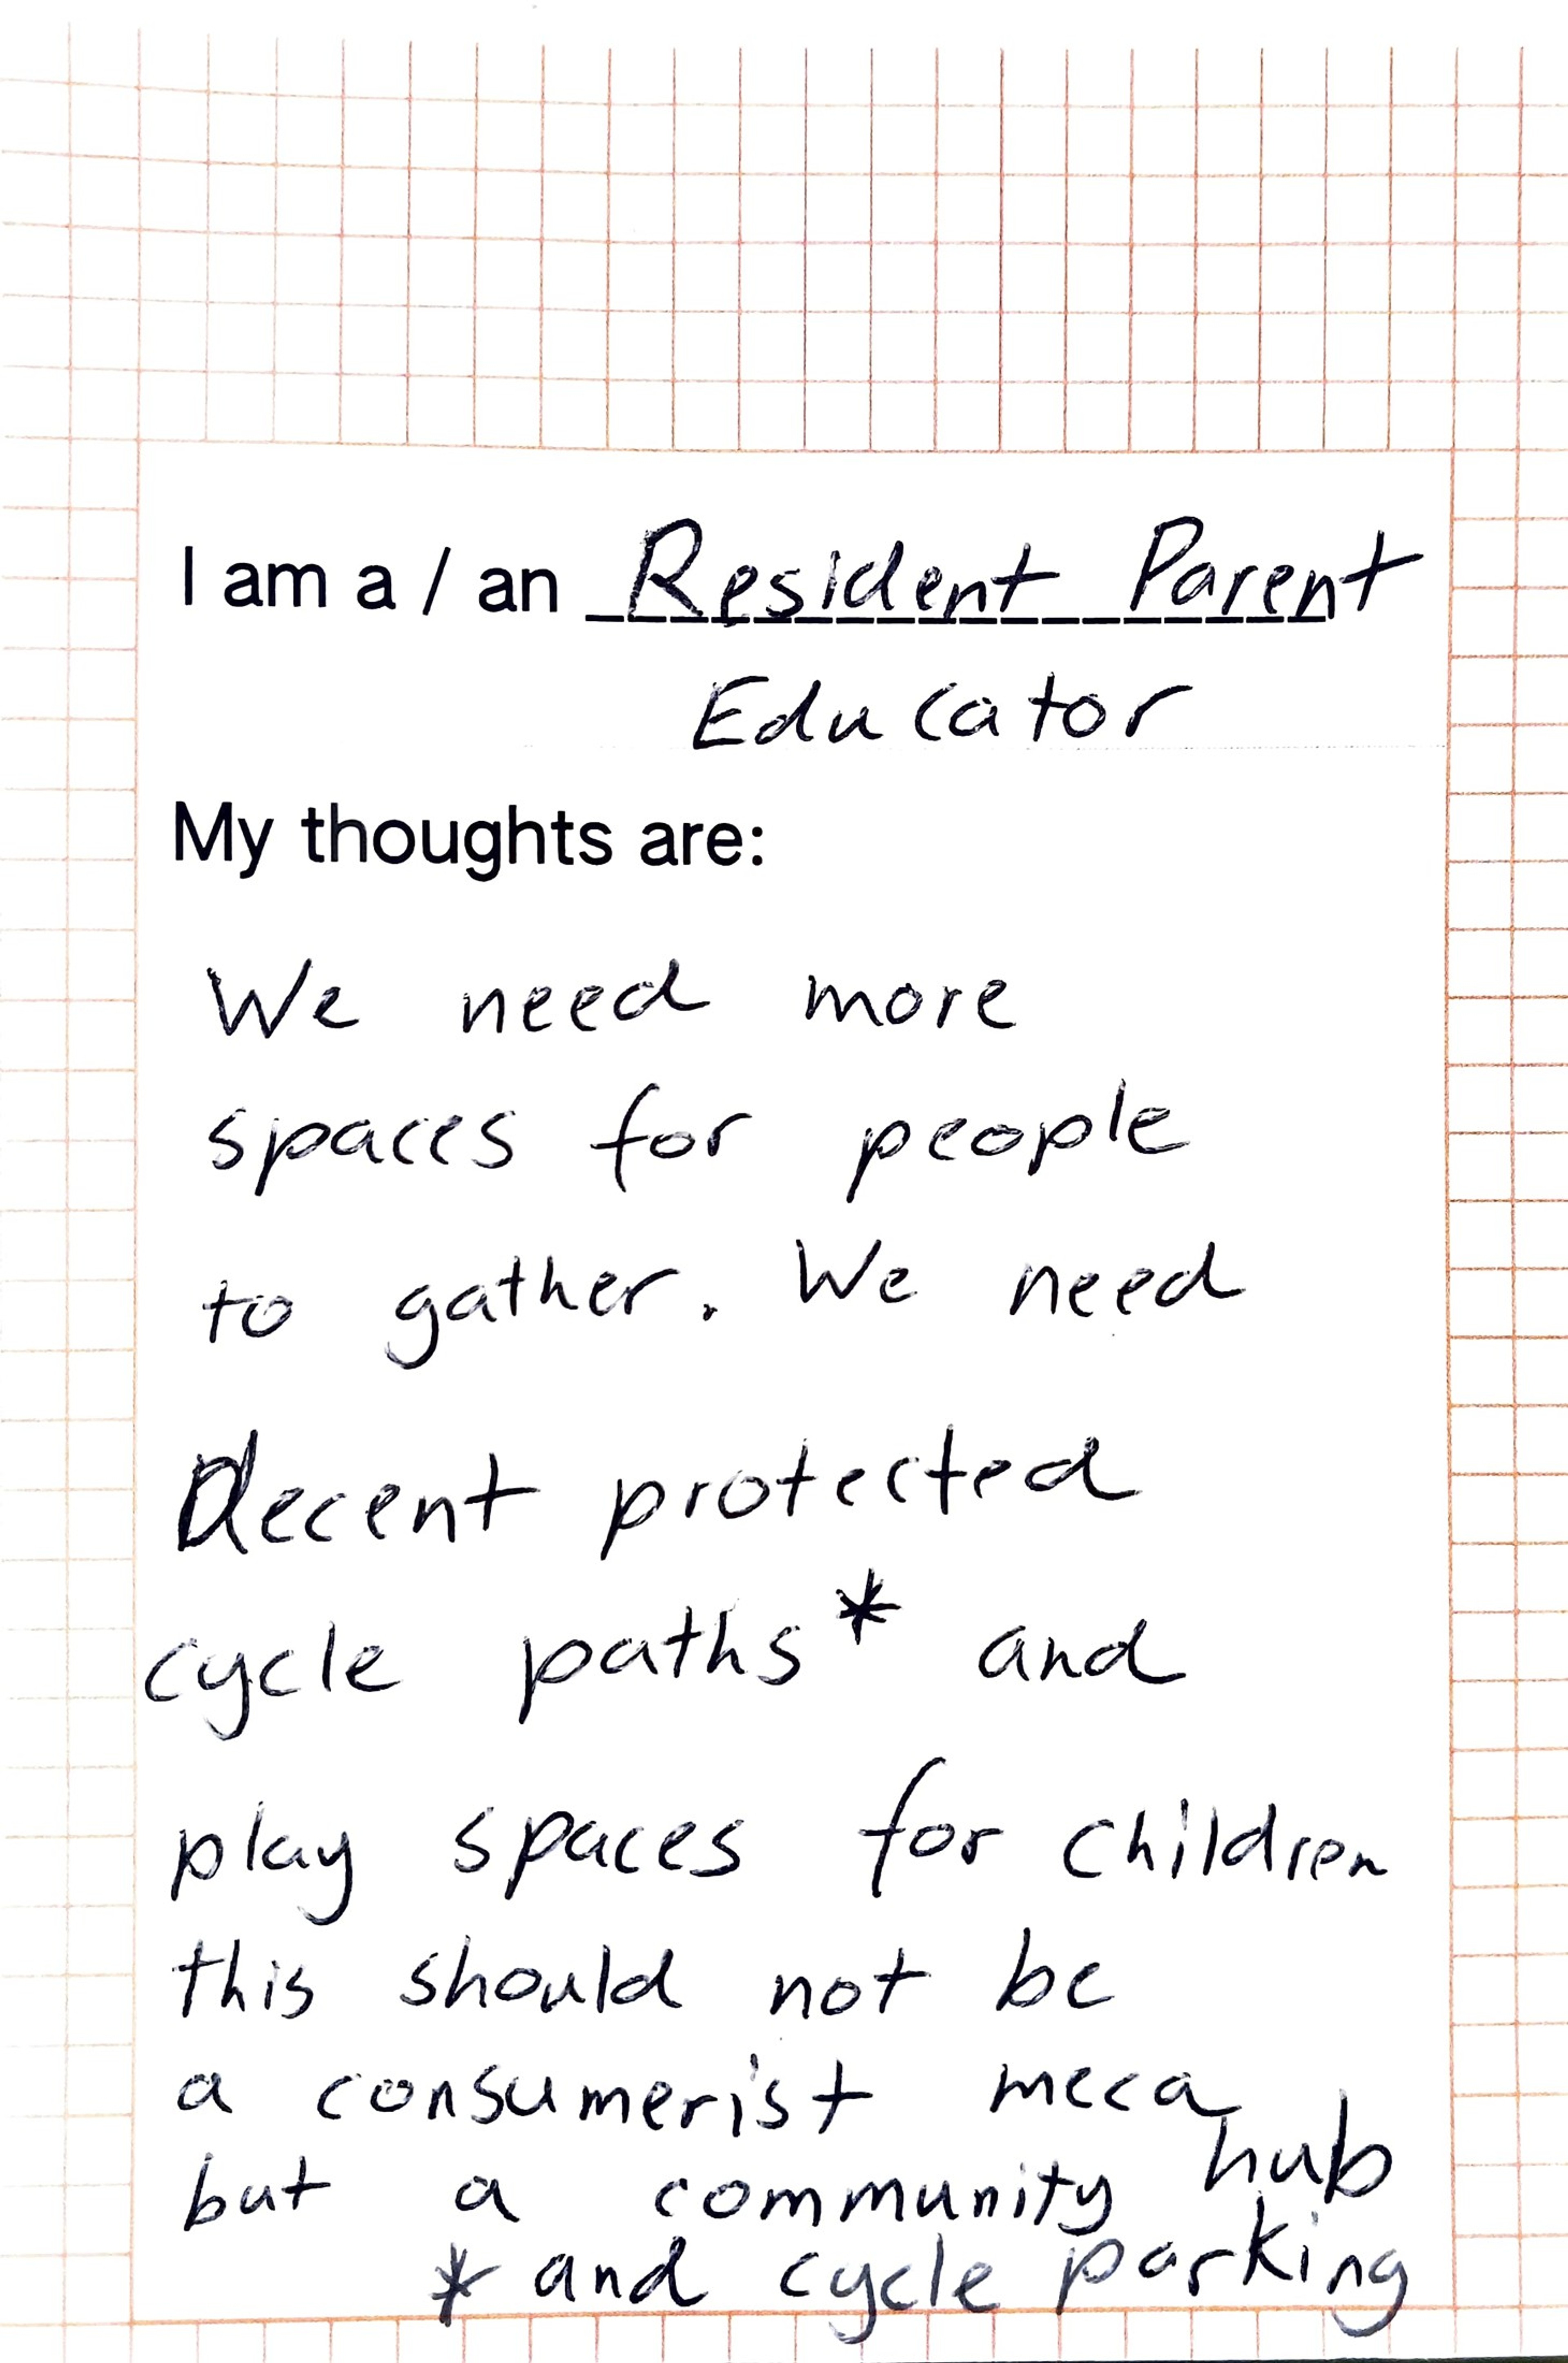 I am a / an Resident Parent
Educator
My thoughts are:
We need more
spaces for people
to gather. We need
Decent protected
cycle paths* and
play spaces for children
this should not be
a consumerist meca
but a community hub
* and cycle parking